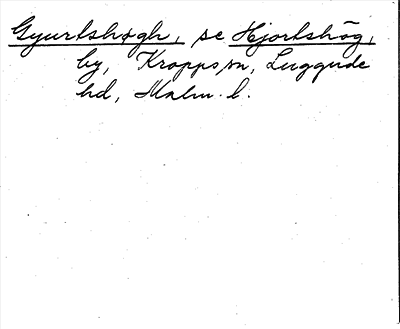 Gyurtshøgh, se Hjortshög,
by, Kropps sn, Luggude
hd, Malm. l.